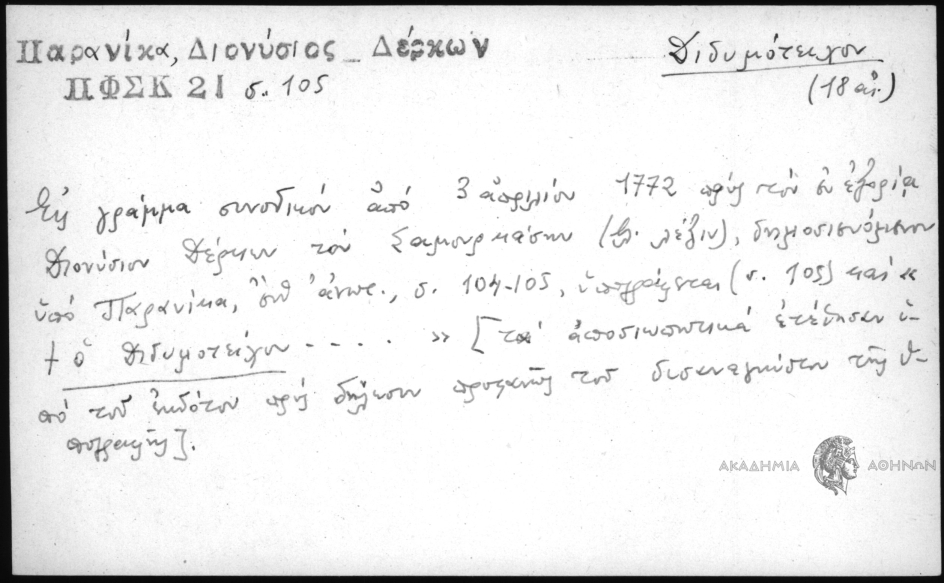 Παρανίκα, Διονύσιος _ Δέρκων
ΠΦΣΚ 21 σ. 105
Διδυμότειχον
(18 αἰ.)
Εἰς γράμμα συνοδικόν ἀπό 3 ἀπριλίου 1772 πρός τον ἐν ἐξορίᾳ
Διονύσιον Δέρκων τον (βλ. λέξιν), δημοσιευόμενον
ὑπό Παρανίκα, ἔνθ' ἀνωτ., σ. 104-105, ὑπογράφεται (σ. 105) και «
† ὁ Διδυμοτείχου - - - - . » [τα ἀποσιωπητικά ἐτέθησαν ὑ-
πό τοῦ ἐκδότου πρός δήλωσιν προφανῶς τοῦ δυσαναγνώστου τῆς ὑ-
πογραφῆς].
ΑΚΑΔΗΜΙΑ ΑΘΗΝΩΝ